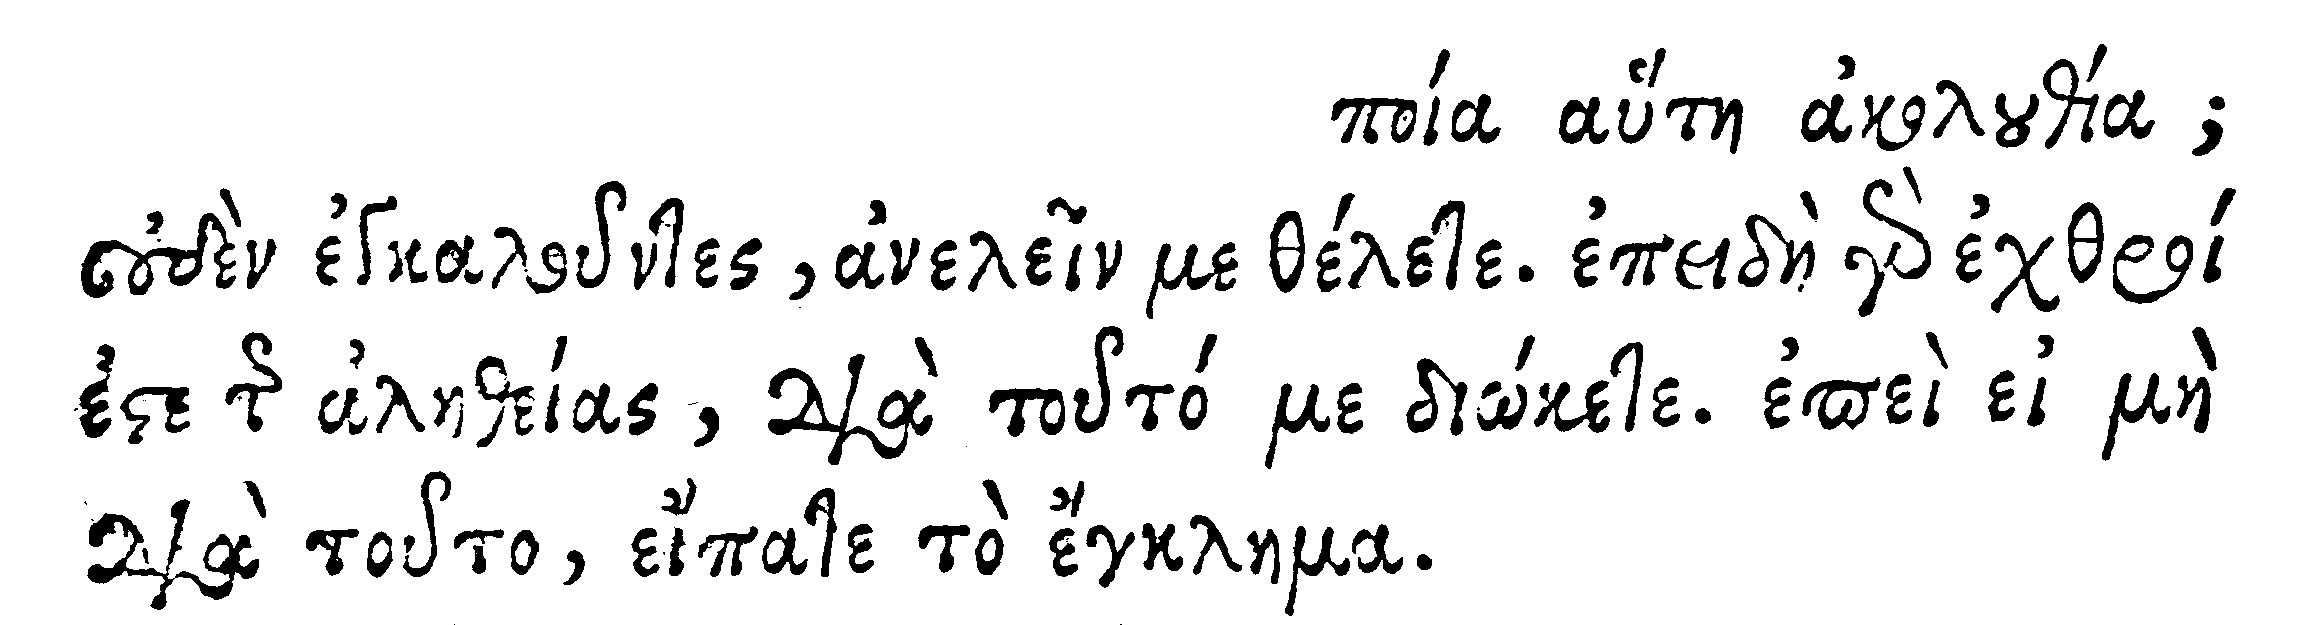 ποία αὕτη ἀκολουθία;
οὐδὲν ἐγκαλοῦντες, ἀνελεῖν με θέλετε. ἐπειδὴ γὰρ ἐχθροί
ἐστε τῆς ἀληθείας, διὰ τοῦτό με διώκετε. ἐπεὶ εἰ μὴ
διὰ τοῦτο, εἴπατε τὸ ἔγκλημα.